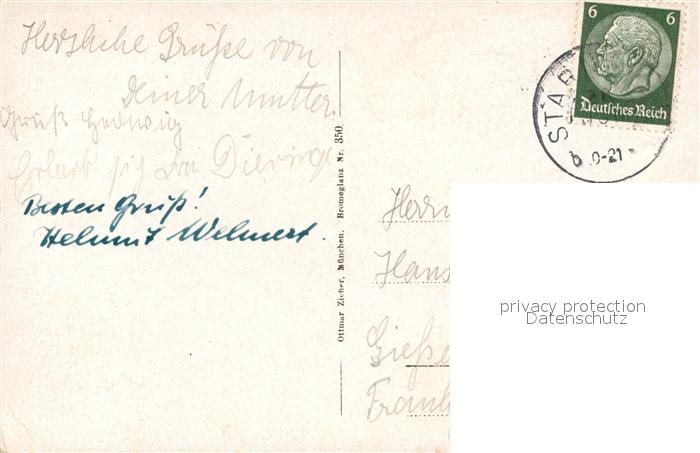 Herzliche Grüße von
Deiner Mutter.
Gruß Hedwig
Frau
Besten Gruß!
Helmut
Ottmar Zieher, München. Bromeglanz Nr. 350.
6 6
Deutsches Reich
STAR
b 0-21
Herrn
Hans
Gieße
Frank
privacy protection
Datenschutz